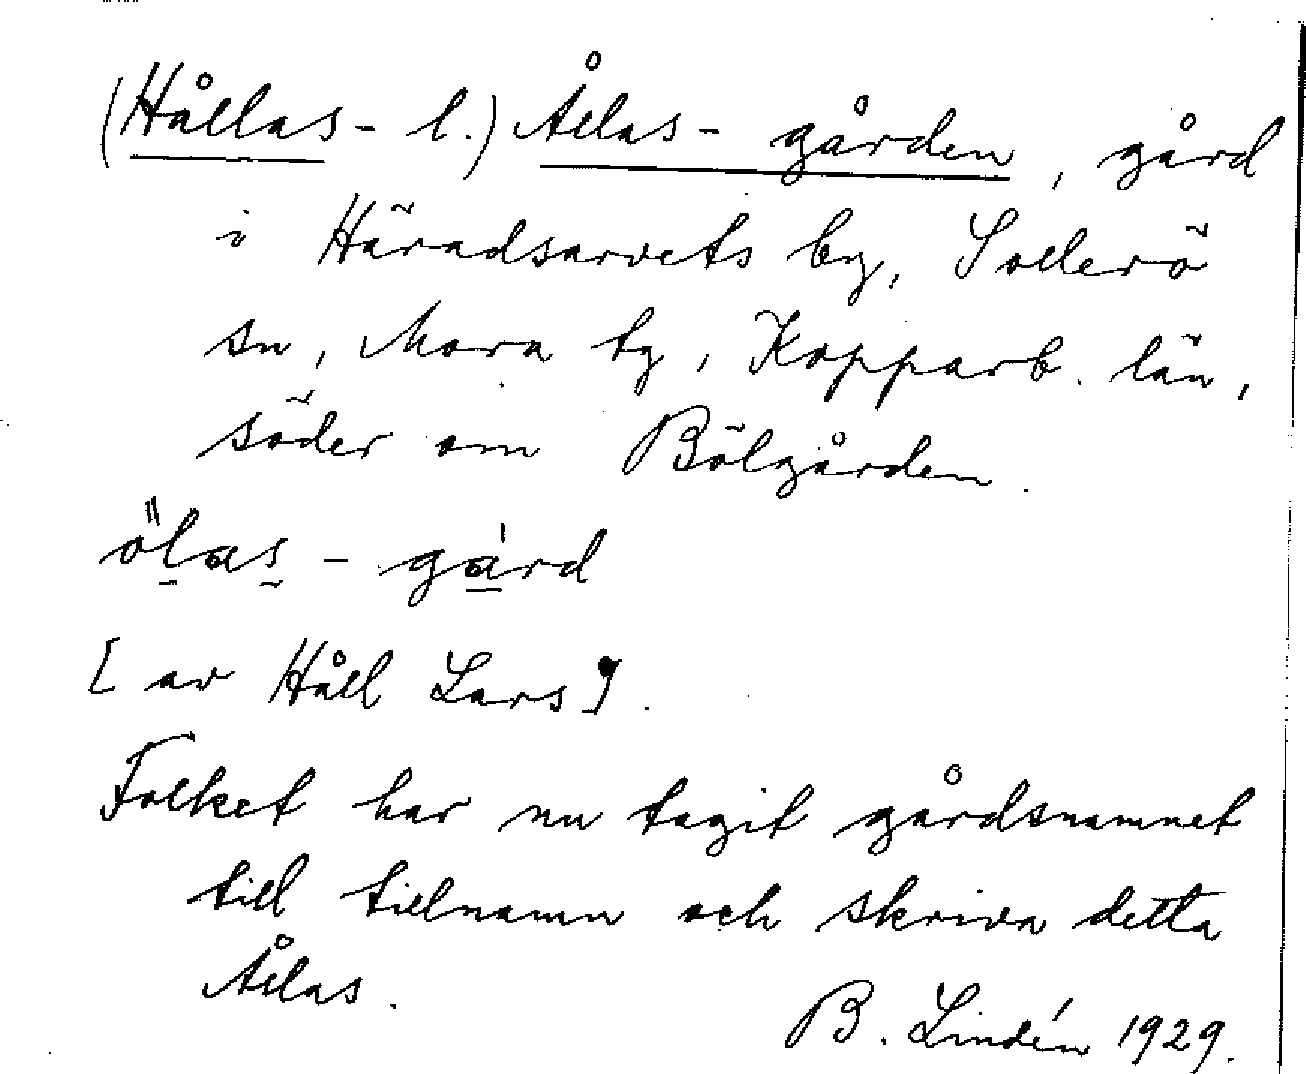 (Hållas- l.) Ållas-gården, gård
i Häradsarvets by, Sollerö
sn, Mora tg, Kopparb. län,
söder om Bölgården.
ölas-gàrd
[av Håll Lars].
Folket har nu tagit gårdsnamnet
till tillnamn och skriva detta
Ållas.
B. Lindén 1929.